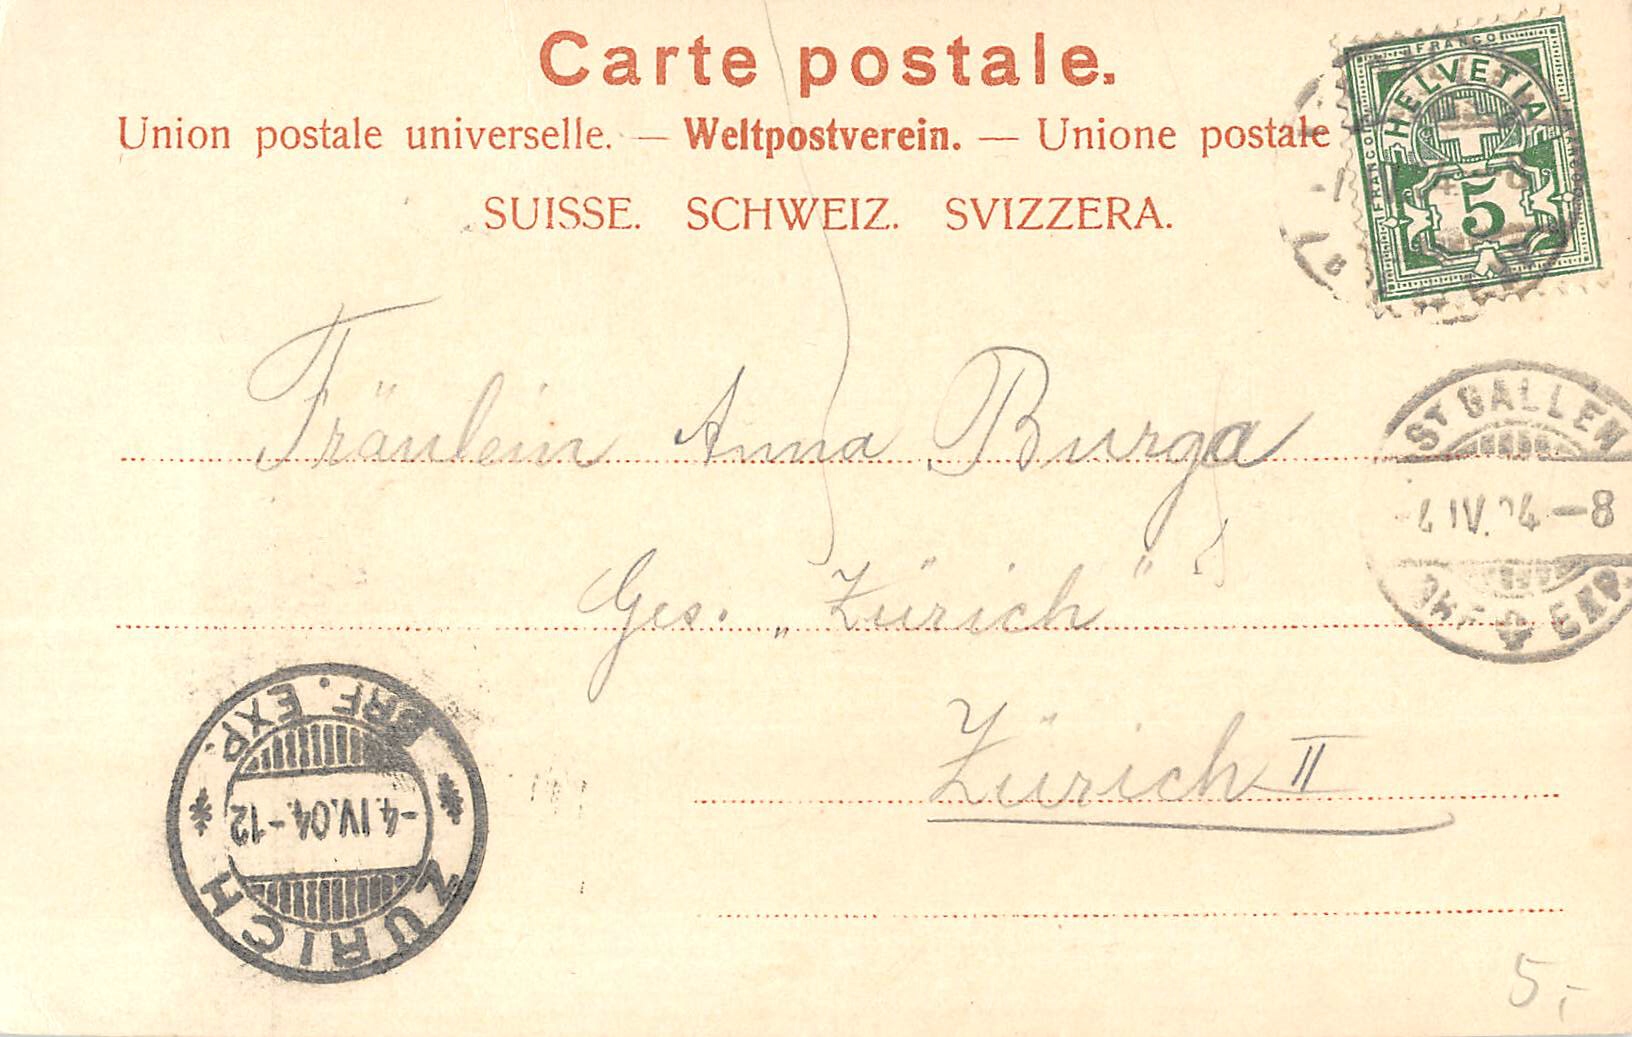 Carte postale.
Union postale universelle. — Weltpostverein. — Unione postale
SUISSE. SCHWEIZ. SVIZZERA.
FRANCO
FRANCO
FRANCO
HELVETIA
5
ST GALLEN
IV. 04 –8
EXP.
Fräulein Anna Burga
Ges. „Zürich"
Zürich II
BRF. EXP.
-4.IV.04.-12
ZÜRICH
5,-